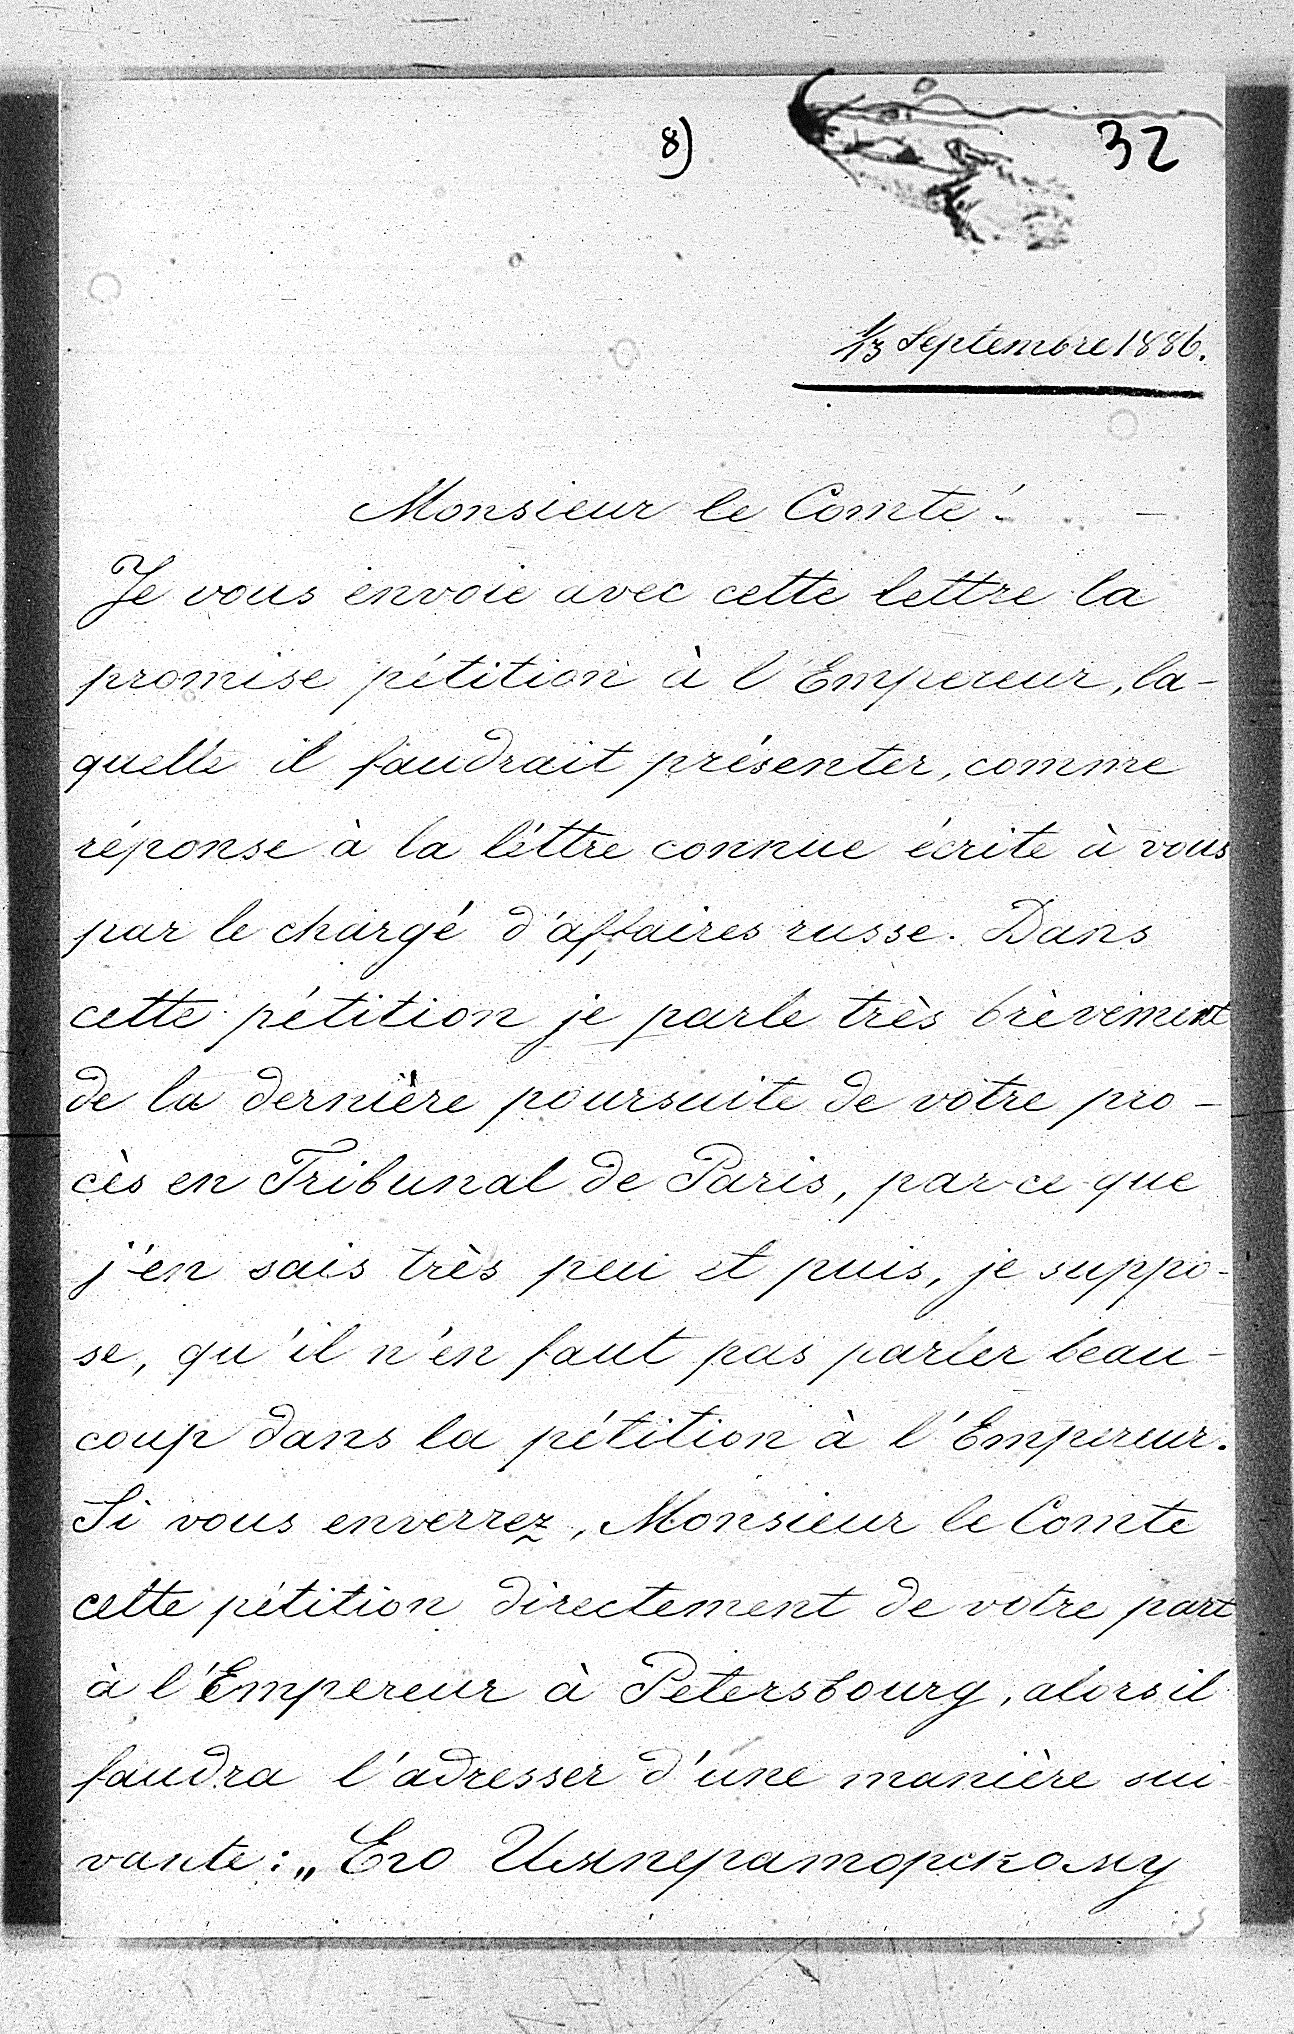 8)
32
1/13 Septembre 1886.
Monsieur le Comte!
Je vous envoie avec cette lettre la
promise pétition à l'Empereur, la-
quelle il faudrait présenter, comme
réponse à la lettre connue écrite à vous
par le chargé d'affaires russe. Dans
cette pétition je parle très brèvement
de la dernière poursuite de votre pro-
cès en Tribunal de Paris, par-ce-que
j'en sais très peu et puis, je suppo-
se, qu'il n'en faut pas parler beau-
coup dans la pétition à l'Empereur.
Si vous enverrez, Monsieur le Comte
cette pétition directement de votre part
à l'Empereur à Petersbourg, alors il
faudra l'adresser d'une manière sui-
vante: „Его Императорскому